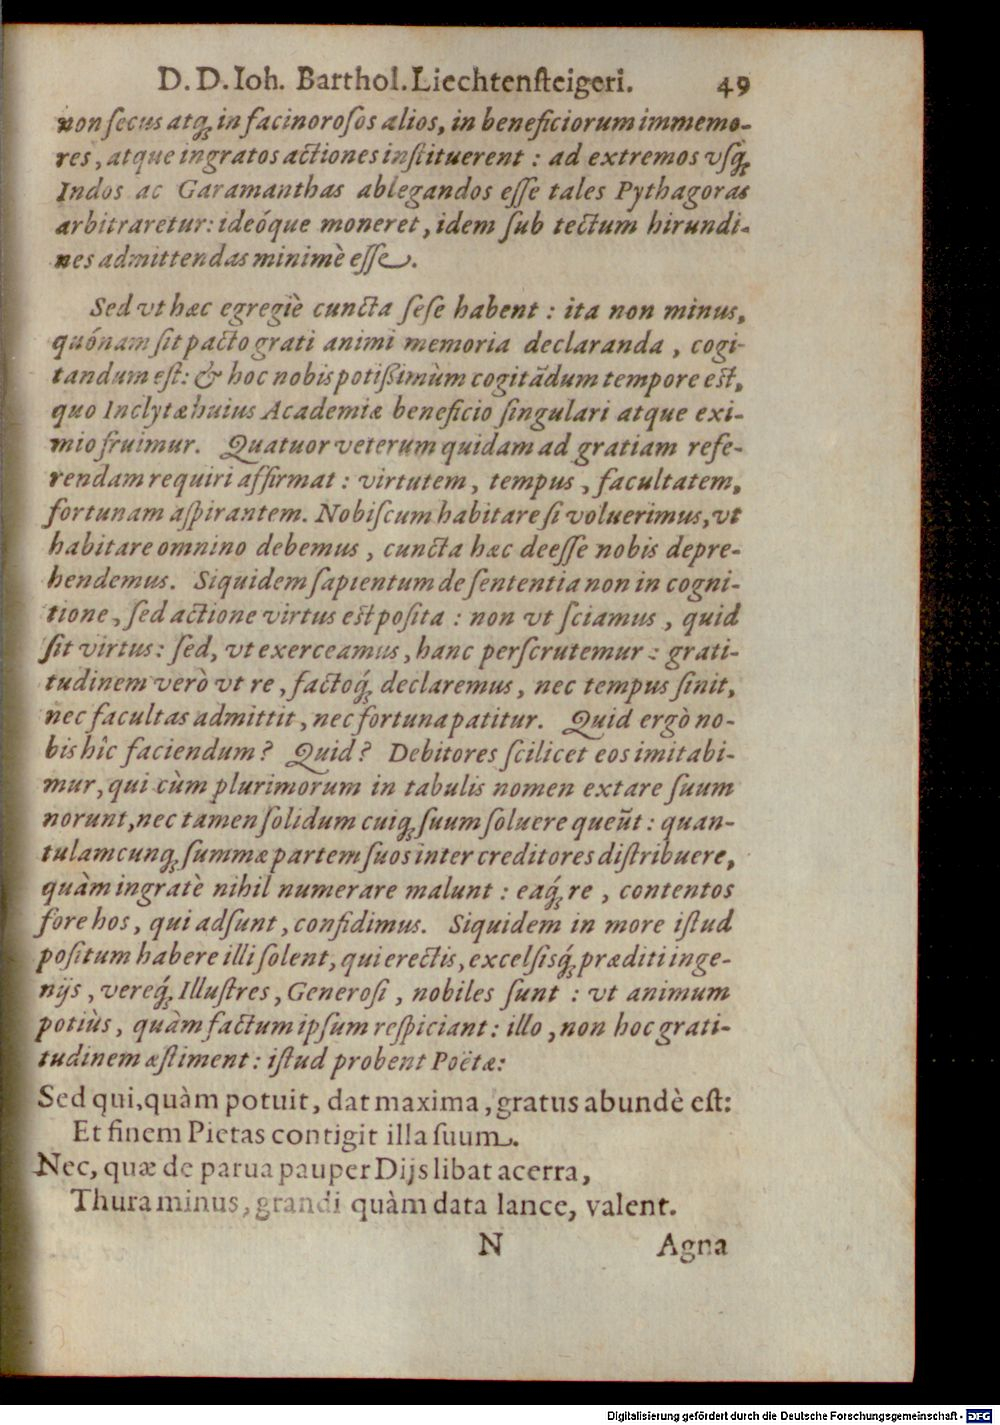 D. D. Ioh. Barthol. Liechtenſteigeri. 49
non ſecus atq́ꝫ in facinoroſos alios, in beneficiorum immemo-
res, atque ingratos actiones inſtituerent : ad extremos vſq́ꝫ
Indos ac Garamanthas ablegandos eſſe tales Pythagoras
arbitraretur: ideóque moneret, idem ſub tectum hirundi-
nes admittendas minimè eſſe.
Sed vt hæc egregiè cuncta ſeſe habent : ita non minus,
quónam ſit pacto grati animi memoria declaranda, cogi-
tandum eſt: & hoc nobis potißimùm cogitãdum tempore eſt,
quo Inclytæ huius Academiæ beneficio ſingulari atque exi-
mio fruimur. Quatuor veterum quidam ad gratiam refe-
rendam requiri affirmat : virtutem, tempus, facultatem,
fortunam aſpirantem. Nobiſcum habitare ſi voluerimus, vt
habitare omnino debemus, cuncta hæc deeſſe nobis depre-
hendemus. Siquidem ſapientum de ſententia non in cogni-
tione, ſed actione virtus eſt poſita : non vt ſciamus, quid
ſit virtus: ſed, vt exerceamus, hanc perſcrutemur : grati-
tudinem verò vt re, factoq́ꝫ declaremus, nec tempus ſinit,
nec facultas admittit, nec fortuna patitur. Quid ergò no-
bis hîc faciendum? Quid? Debitores ſcilicet eos imitabi-
mur, qui cùm plurimorum in tabulis nomen extare ſuum
norunt, nec tamen ſolidum cuiqꝫ ſuum ſoluere queũt : quan-
tulamcunqꝫ ſummæ partem ſuos inter creditores diſtribuere,
quàm ingratè nihil numerare malunt : eaq́ꝫ re, contentos
fore hos, qui adſunt, confidimus. Siquidem in more iſtud
poſitum habere illi ſolent, qui erectis, excelſisq́ꝫ præditi inge-
nijs, vereq́ꝫ Illuſtres, Generoſi, nobiles ſunt : vt animum
potiùs, quàm factum ipſum reſpiciant : illo, non hoc grati-
tudinem æſtiment : iſtud probent Poëtæ:
Sed qui, quàm potuit, dat maxima, gratus abundè eſt:
Et finem Pietas contigit illa ſuum.
Nec, quæ de parua pauper Dijs libat acerra,
Thura minus, grandi quàm data lance, valent.
N Agna
Digitalisierung gefördert durch die Deutsche Forschungsgemeinschaft - DFG